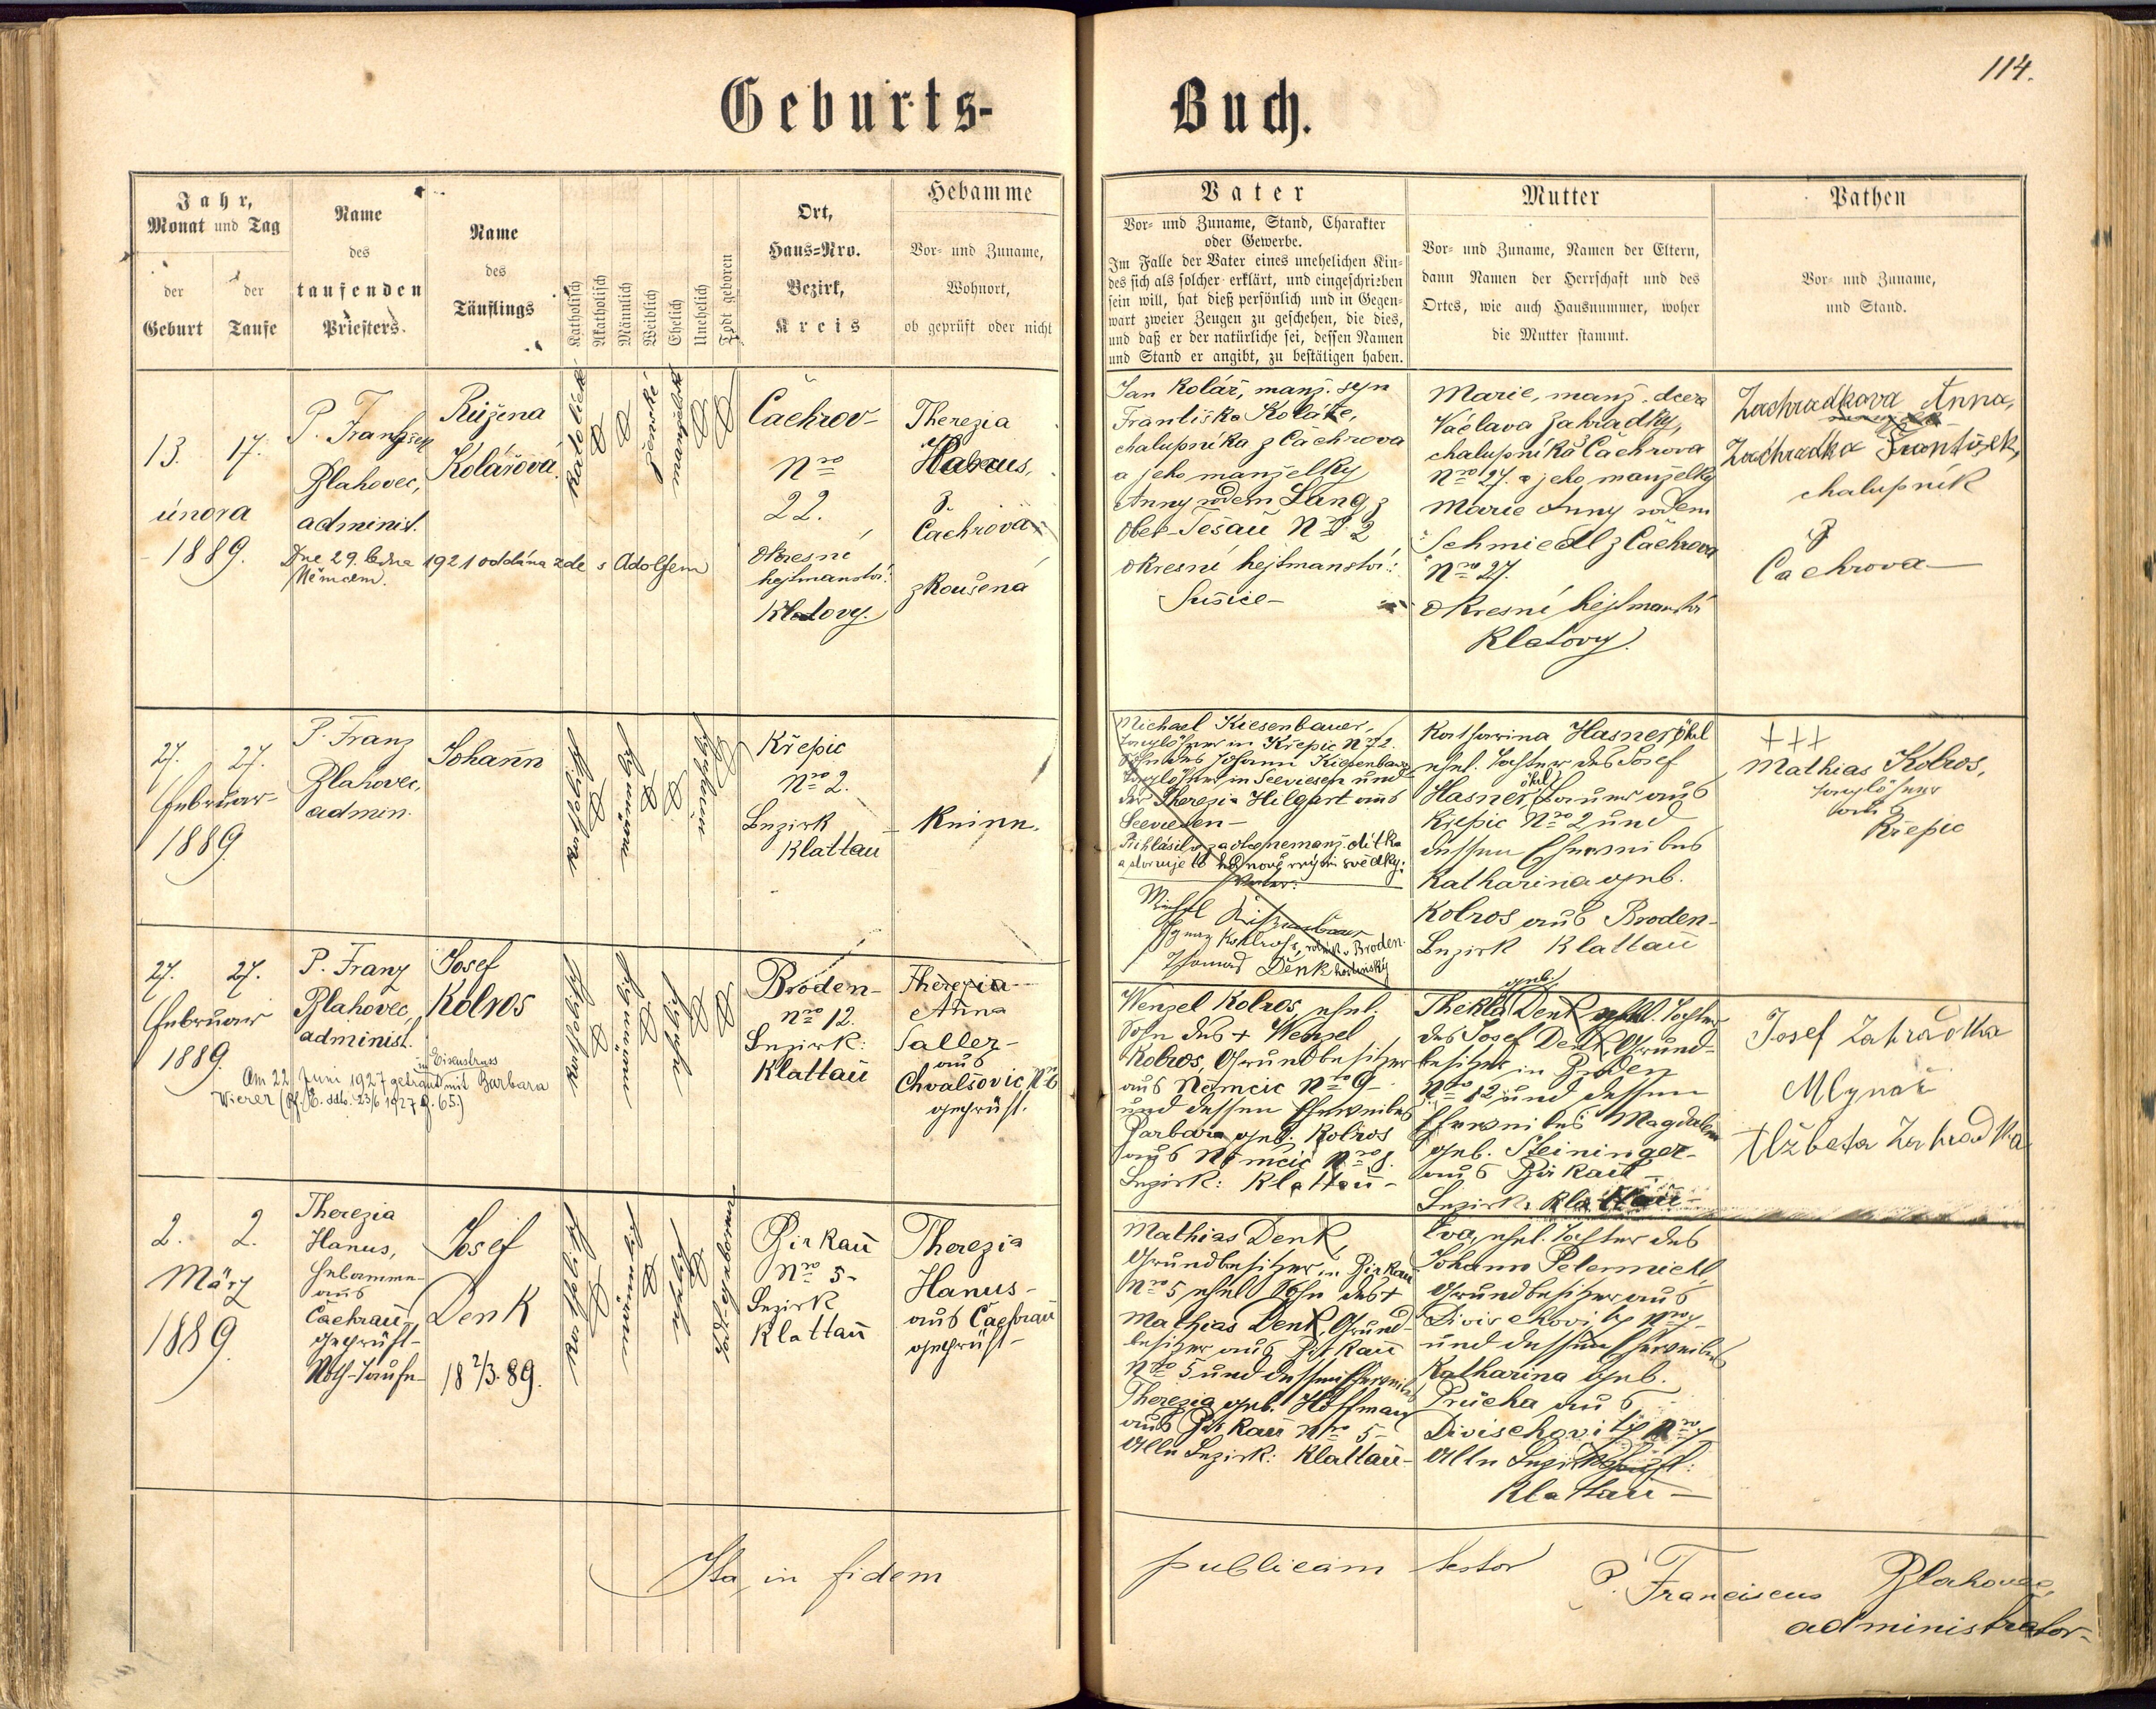 114.
Geburts-
Buch.
Jahr,
Monat und Tag
der
Geburt
der
Taufe
Name
des
taufenden
Priesters.
Name
des
Täuflings
Katholisch
Akatholisch
Männlich
Weiblich
Ehelich
Unehelich
Todt geboren
Ort,
Haus-Nro.
Bezirk,
Kreis
Hebamme
Vor- und Zuname,
Wohnort,
ob geprüft oder nicht
Vater
Vor- und Zuname, Stand, Charakter
oder Gewerbe.
Im Falle der Vater eines unehelichen Kin-
des sich als solcher erklärt, und eingeschrieben
sein will, hat dieß persönlich und in Gegen-
wart zweier Zeugen zu geschehen, die dies,
und daß er der natürliche sei, dessen Namen
und Stand er angibt, zu bestätigen haben.
Mutter
Vor- und Zuname, Namen der Eltern,
dann Namen der Herrschaft und des
Ortes, wie auch Hausnummer, woher
die Mutter stammt.
Pathen
Vor- und Zuname,
und Stand.
13. 17.
února
1889.
P. František
Blahovec,
administ.
Růžena
Kolářová.
Dne 29. ledna 1921 oddána zde s Adolfem
Němcem.
katolické
ženské
Čachrov-
Nro
22.
okresní
hejtmanství:
Klatovy.
Therezia
Hanus,
z
Čachrova
zkoušená
Jan Kolář, manž. syn
Františka Koláře,
chalupníka z Čachrova
a jeho manželky
Anny rodem Lang z
Ober-Tešau No 2
okresní hejtmanství:
Sušice-
Marie, manž. dcera
Václava Zahradky,
chalupníka z Čachrova
Nro 27. a jeho manželky
Marie Anny rodem
Schmiedl z Čachrova
Nro 27.
okresní hejtmanství
Klatovy.
Zachradkova Anna,
Zachradka František,
chalupník
z
Čachrova-
27. 27.
Februar-
1889.
P. Franz
Blahovec,
admin.
Johann
Křepic
Nro 2.
Bezirk
Klattau
- Keine.
Michael Kiesenbauer,
Taglöhner in Křepic No 2.
Sohn des Johann Kiesenbauer
Taglöhner in Seewiesen und
der Therezia Hilgart aus
Seewiesen-
Přihlásil se za otce nemanž. dítka
Vater:
Thomas Denk hostinský
Katharina Hasneröhrl
ehel. Tochter des Josef
Hasneröhrl, Bauer aus
Křepic Nro 2 und
dessen Eheweibes
Katharina geb.
Kolros aus Broden-
Bezirk Klattau
+++
Mathias Kolros,
Taglöhner
aus
Křepic
27. 27.
Februar
1889.
P. Franz
Blahovec,
administ.
Josef
Kolros
in Eisenstrass
Am 22. Juni 1927 getraut mit Barbara
Wierer
Broden-
Nro 12.
Bezirk:
Klattau
Therezia-
Anna
Saller-
aus
Chvalšovic No 6
geprüft.
Wenzel Kolros, ehel.
Sohn des + Wenzel
Kolros, Grundbesitzer
aus Němčic Nro 9-
und dessen Eheweibes
Barbara geb. Kolros
aus Němčic Nro 8.
Bezirk: Klattau-
Thekla geb. Denk, ehel. Tochter
des Josef Denk, Grund-
besitzer in Broden
Nro 12 und dessen
Eheweibes Magdalena
geb. Steininger-
aus Birkau-
Bezirk: Klattau-
Josef Zahradka
Mlynář
Alžbeta Zahradka
2. 2.
März
1889.
Therezia
Hanus,
Hebamme
aus
Čachrau-
geprüft-
Noth-Taufe-
Josef
Denk
18 2/3. 89.
Birkau
Nro 5-
Bezirk
Klattau
Therezia
Hanus-
aus Čachrau
geprüft-
Mathias Denk,
Grundbesitzer in Birkau
Nro 5 ehel. Sohn des +
Mathias Denk, Grund-
besitzer aus Birkau
Nro 5 und dessen Eheweibes
Therezia geb. Hoffman
aus Birkau Nro 5-
Alle Bezirk: Klattau-
Eva, ehel. Tochter des
Johann Petermichl,
Grundbesitzer aus
Divischovitz Nro 7-
und dessen Eheweibes
Katharina geb.
Průcha aus
Divischovitz Nro 7
Alle Bezirk
Klattau-
Ita in fidem
publicam testor
P. Franciscus Blahovec,
administrator-